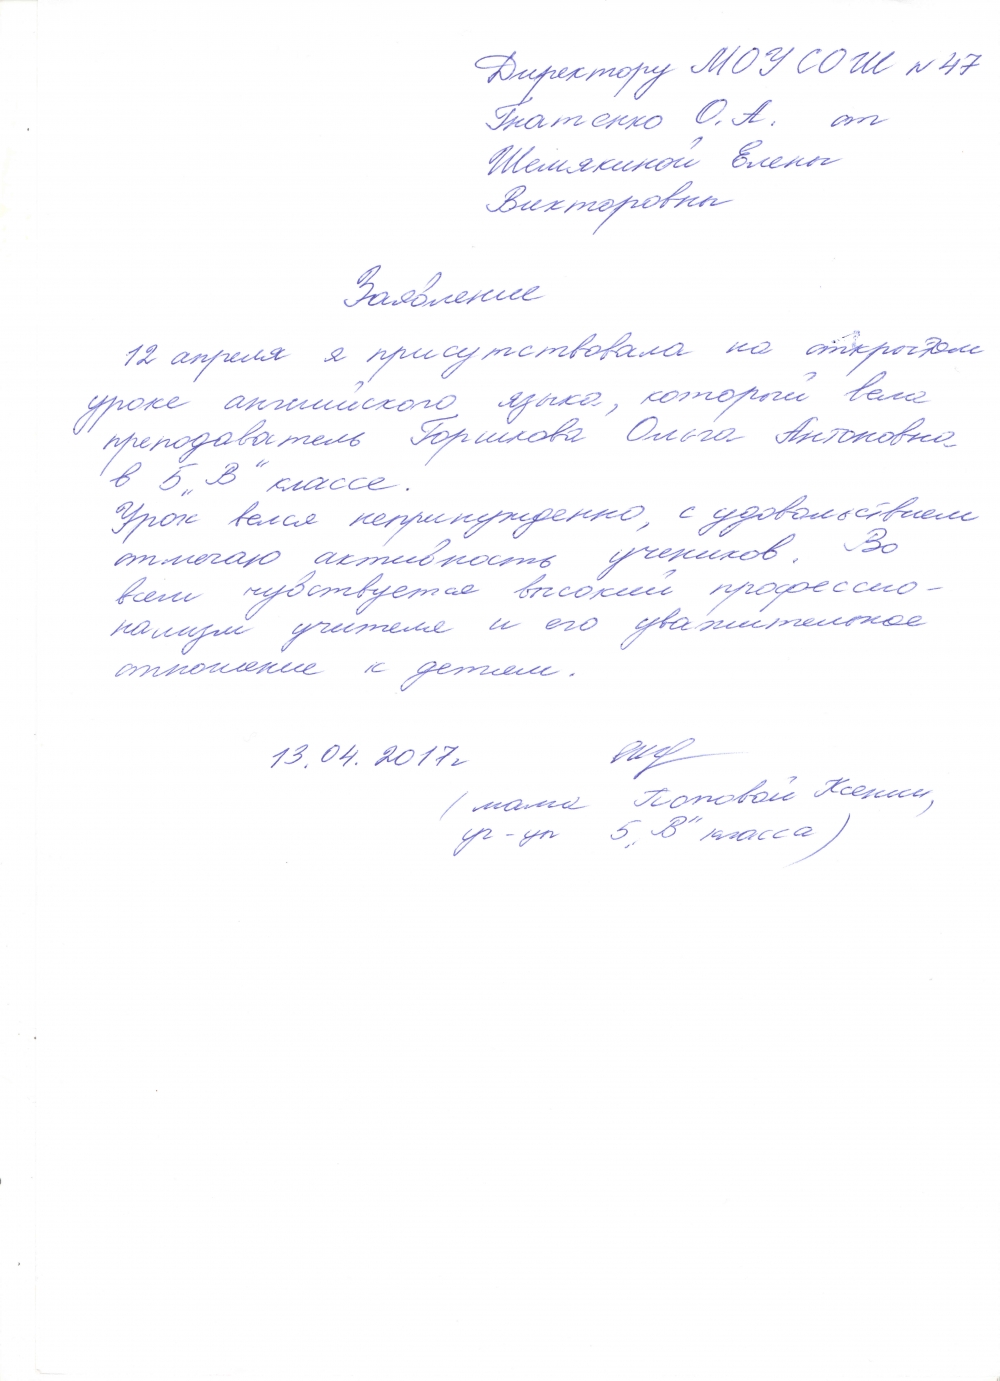 Директору МОУ СОШ № 47
Гнатенко О. А. от
Шемякиной Елены
Викторовны
Заявление
12 апреля я присутствовала на открытом
уроке английского языка, который вела
преподаватель Горшкова Ольга Антоновна
в 5 „В“ классе.
Урок велся непринужденно, с удовольствием
отмечаю активность учеников. Во
всем чувствуется высокий профессио-
нализм учителя и его уважительное
отношение к детям.
13.04.2017г
(мама Поповой Ксении,
уч-цы 5 „В“ класса)